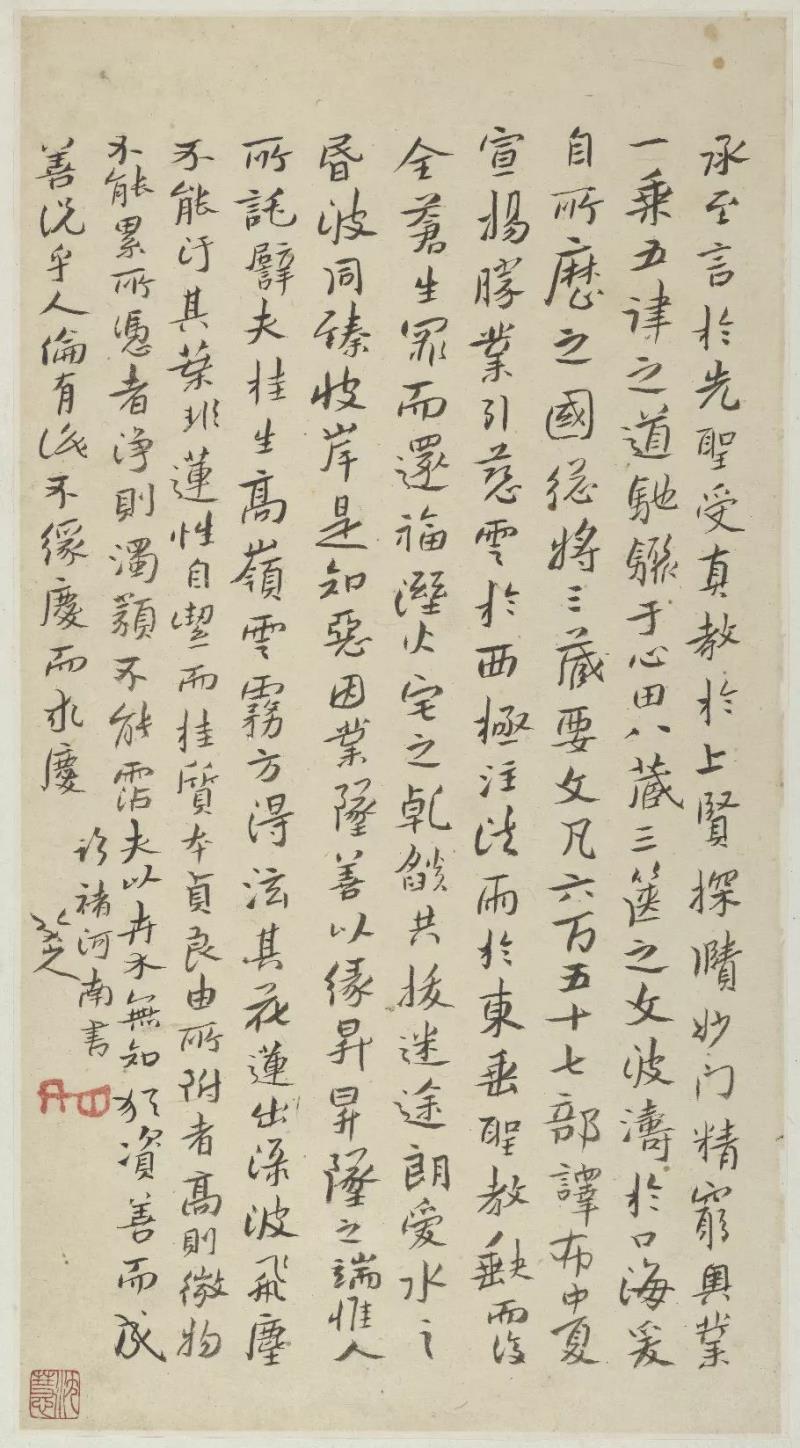 承至言於先聖受真教於上賢探賾妙門精窮奧業
一乘五律之道馳驟于心田八藏三篋之文波濤於口海爰
自所歷之國総將三藏要文凡六百五十七部譯布中夏
宣揚勝業引慈雲於西極注法雨於東垂聖教缺而復
全蒼生罪而還福溼火宅之乾燄共拔迷途朗愛水之
昏波同臻彼岸是知惡因業墜善以緣昇昇墜之端惟人
所託譬夫桂生高嶺雲霧方得泫其花蓮出渌波飛塵
不能汙其葉非蓮性自潔而桂質本貞良由所附者高則微物
不能累所憑者淨則濁類不能霑夫以卉木無知猶資善而成
善況乎人倫有識不緣慶而求慶
臨褚河南書
八大山人